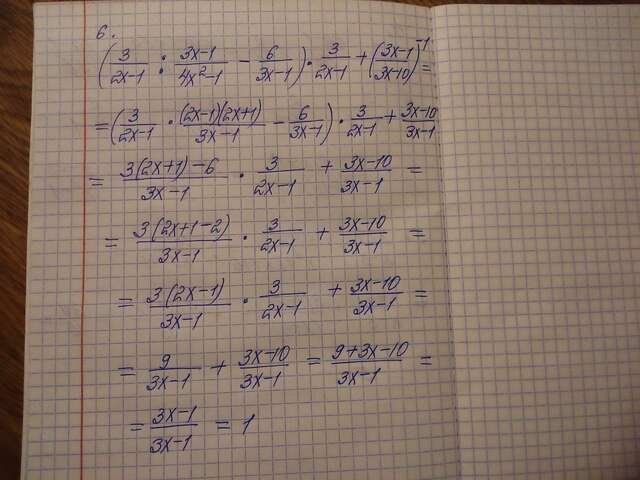 6.
(3/(2x-1) : (3x-1)/(4x²-1) - 6/(3x-1)) · 3/(2x-1) + ((3x-1)/(3x-10))⁻¹ =
= (3/(2x-1) · (2x-1)(2x+1)/(3x-1) - 6/(3x-1)) · 3/(2x-1) + (3x-10)/(3x-1)
= (3(2x+1)-6)/(3x-1) · 3/(2x-1) + (3x-10)/(3x-1) =
= 3(2x+1-2)/(3x-1) · 3/(2x-1) + (3x-10)/(3x-1) =
= 3(2x-1)/(3x-1) · 3/(2x-1) + (3x-10)/(3x-1) =
= 9/(3x-1) + (3x-10)/(3x-1) = (9+3x-10)/(3x-1) =
= (3x-1)/(3x-1) = 1